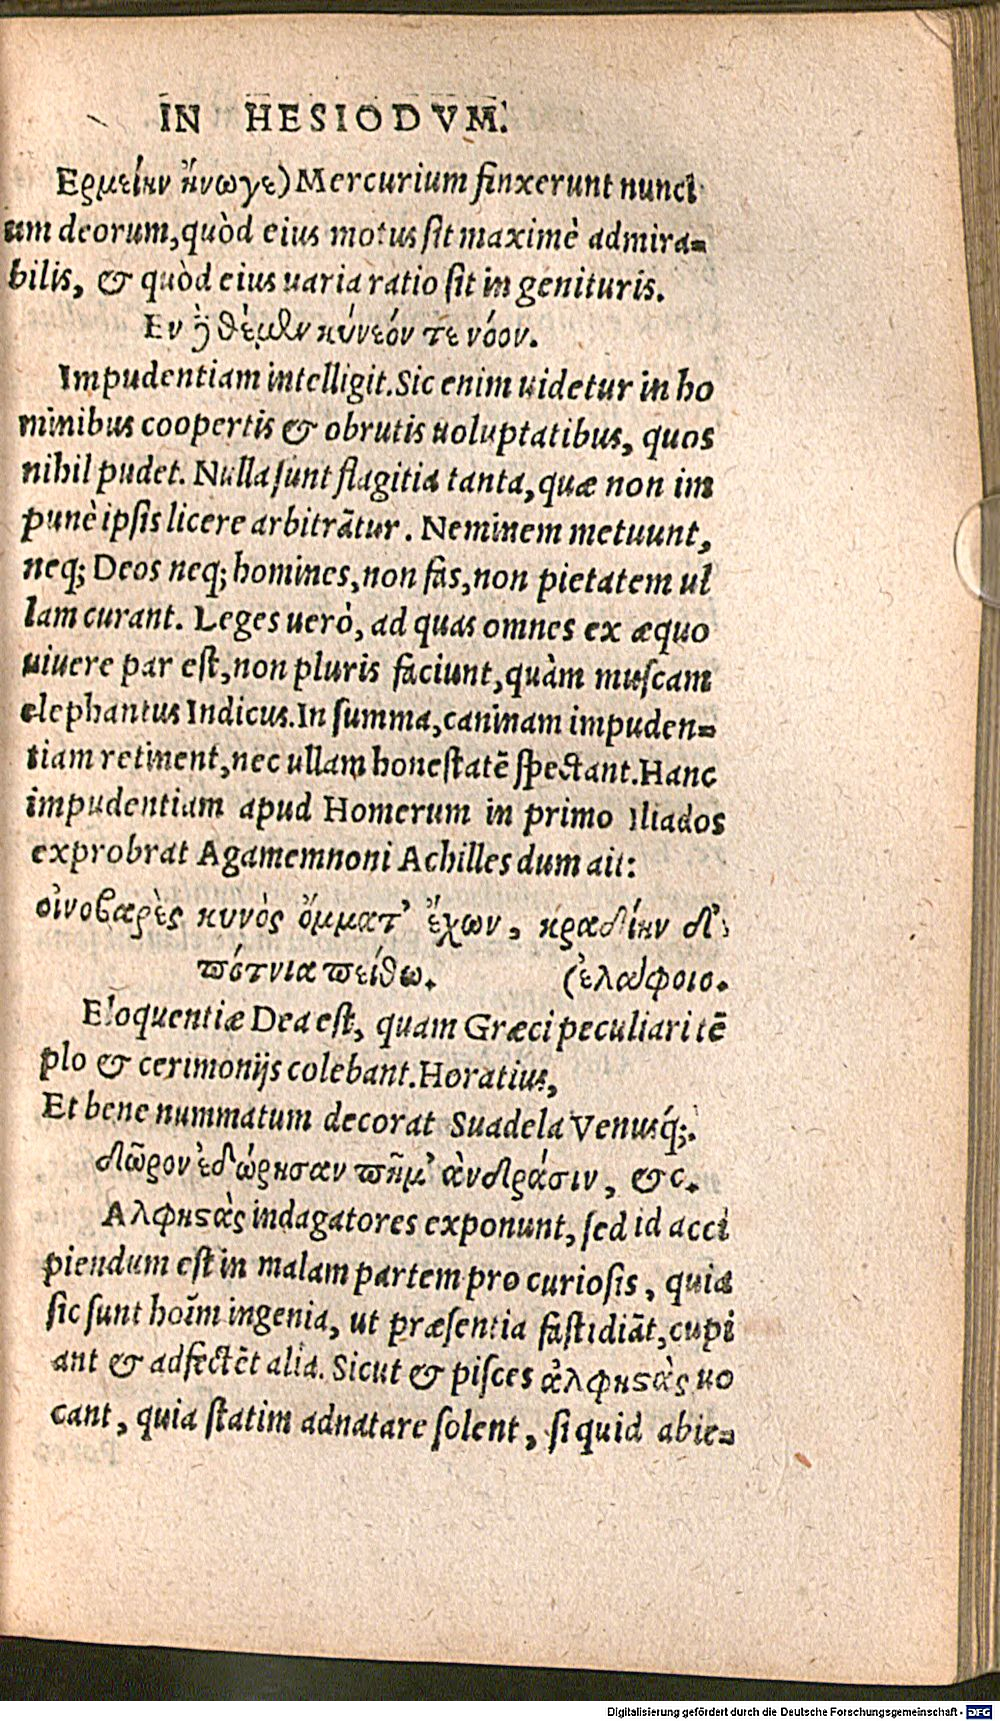 IN HESIODVM.
Ερμείην ἤνωγε) Mercurium finxerunt nunci
um deorum, quòd eius motus sit maximè admira=
bilis, & quòd eius uaria ratio sit in genituris.
Εν δὲ θέμεν κύνεόν τε νόον.
Impudentiam intelligit. Sic enim uidetur in ho
minibus coopertis & obrutis uoluptatibus, quos
nihil pudet. Nulla sunt flagitia tanta, quæ non im
punè ipsis licere arbitrātur. Neminem metuunt,
neq; Deos neq; homines, non fas, non pietatem ul
lam curant. Leges uerò, ad quas omnes ex æquo
uiuere par est, non pluris faciunt, quàm muscam
elephantus Indicus. In summa, caninam impuden=
tiam retinent, nec ullam honestatē spectant. Hanc
impudentiam apud Homerum in primo Iliados
exprobrat Agamemnoni Achilles dum ait:
οἰνοβαρὲς κυνὸς ὄμματ' ἔχων, κραδίην δ'
πότνια πείθω. (ἐλάφοιο.
Eloquentiæ Dea est, quam Græci peculiari tē
plo & cerimonijs colebant. Horatius,
Et bene nummatum decorat Suadela Venusq́;.
δῶρον ἐδώρησαν πῆμ' ἀνδράσιν, &c.
Αλφηϛὰς indagatores exponunt, sed id acci
piendum est in malam partem pro curiosis, quia
sic sunt hoīm ingenia, ut præsentia fastidiāt, cupi
ant & adfectēt alia. Sicut & pisces ἀλφηϛὰς uo
cant, quia statim adnatare solent, si quid abie=
Digitalisierung gefördert durch die Deutsche Forschungsgemeinschaft - DFG